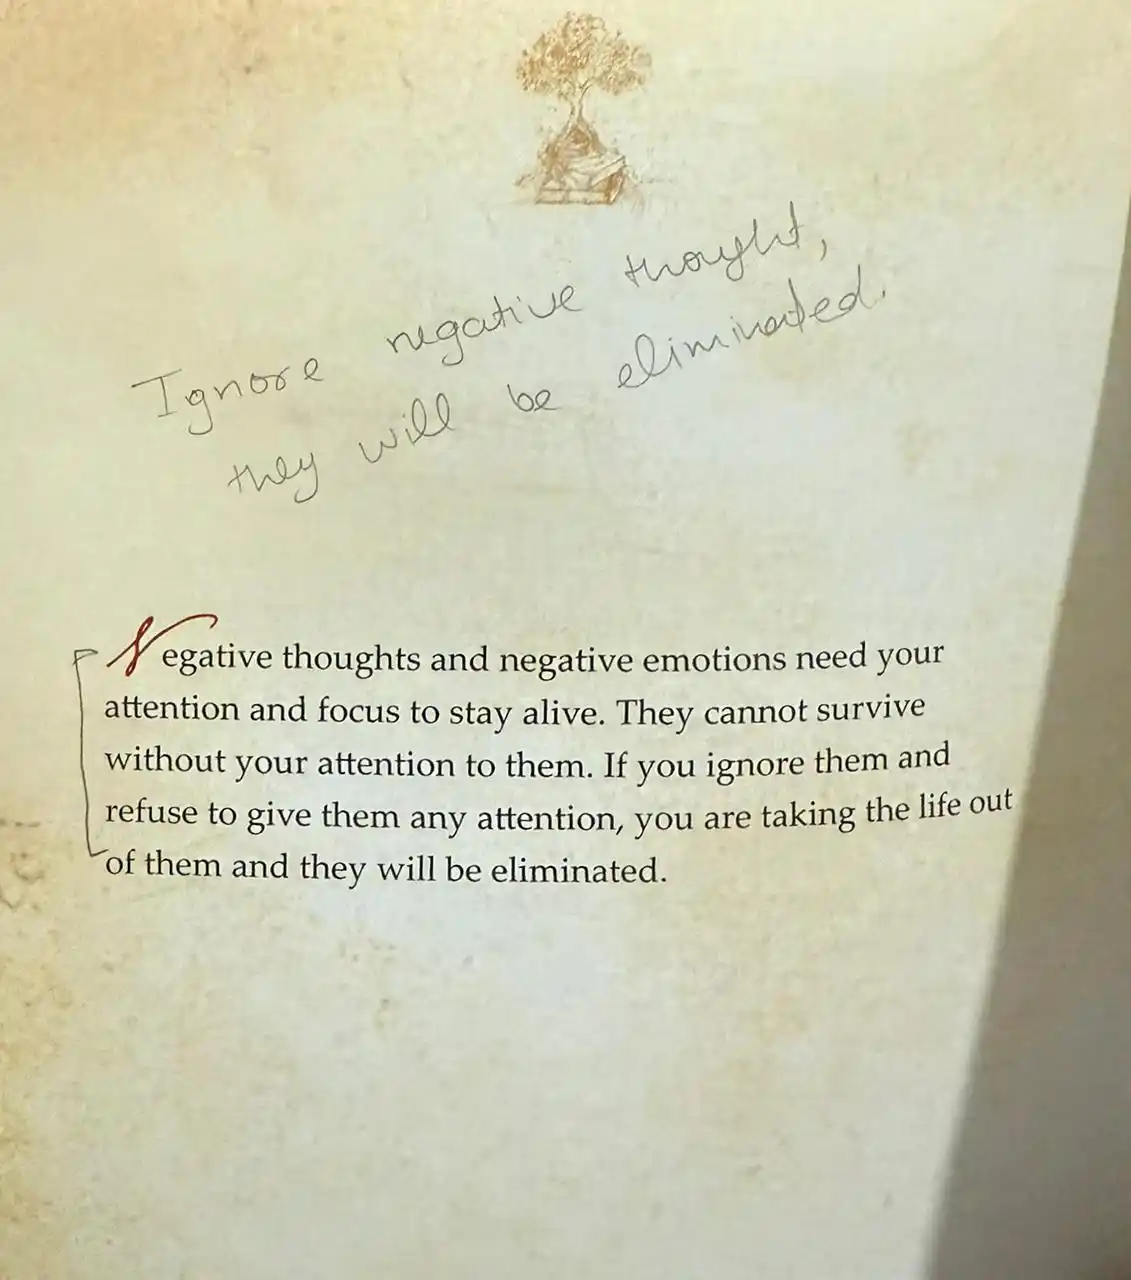 Ignore negative thought,
they will be eliminated.
Negative thoughts and negative emotions need your
attention and focus to stay alive. They cannot survive
without your attention to them. If you ignore them and
refuse to give them any attention, you are taking the life out
of them and they will be eliminated.